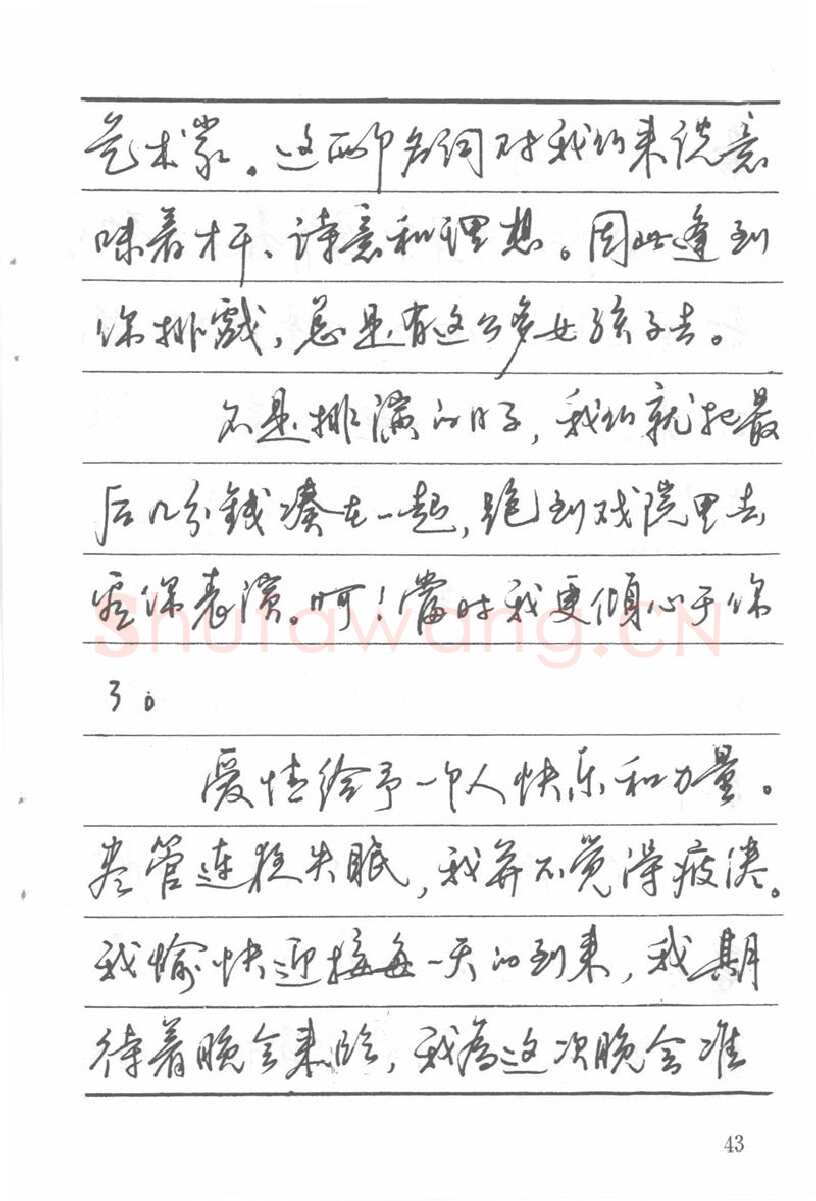 艺术家。这两个名词对我们来说意
味着才干、诗意和理想。因此逢到
你排戏,总是有这么多女孩子去。
不是排演的日子,我们就把最
后几分錢凑在一起,跑到戏院里去
看你表演。呵!當时我更倾心于你
了。
爱情给予一个人快乐和力量。
尽管连夜失眠,我并不觉得疲惫。
我愉快迎接每一天的到来,我期
待着晚会来临,我為这次晚会准
Shufawang.CN
43